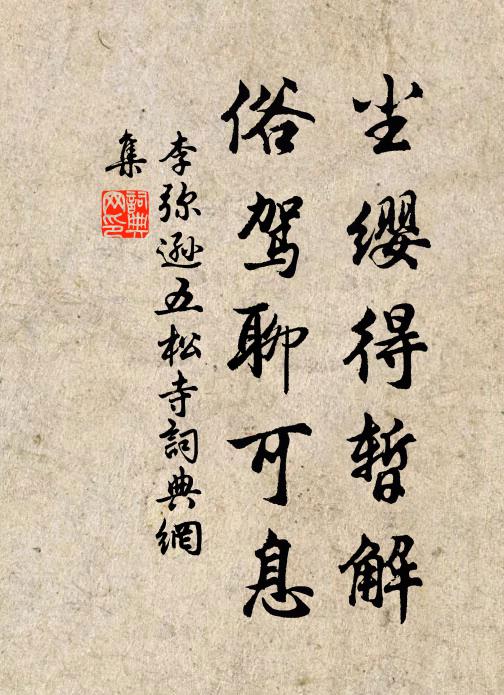 尘缨得暂解
俗驾聊可息
李弥逊五松寺詞典網
集
詞典
网印